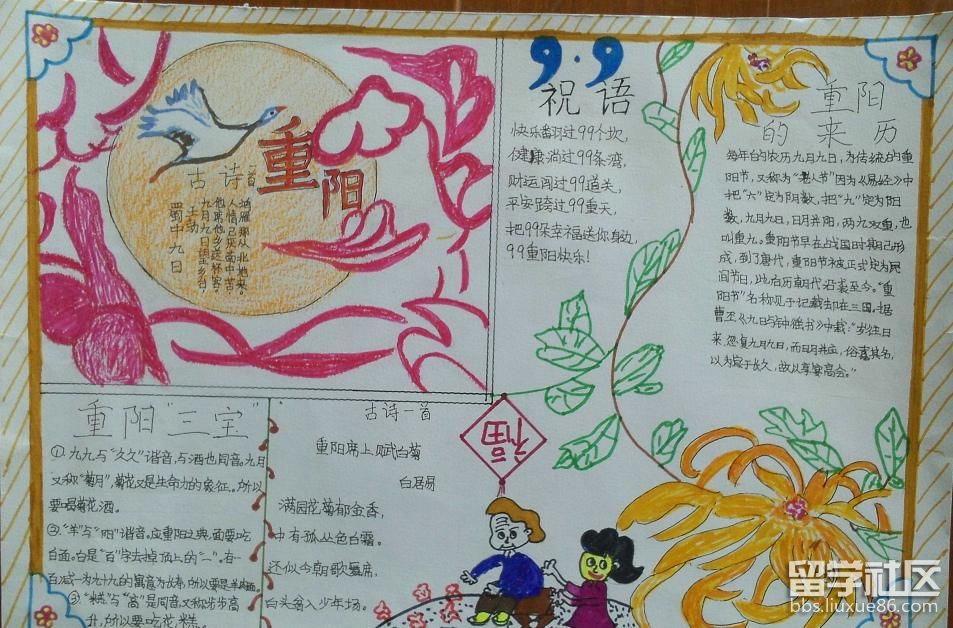 重阳
古诗一首
蜀中九日
王勃
九月九日望乡台,
他席他乡送客杯。
人情已厌南中苦,
鸿雁那从北地来。
9·9
祝语
快乐翻过99个坎,
健康淌过99条湾,
财运闯过99道关,
平安跨过99重天,
把99朵幸福送你身边,
99重阳快乐!
重阳
的来历
每年的农历九月九日,为传统的重
阳节,又称为"老人节"因为《易经》中
把"六"定为阴数,把"九"定为阳
数,九月九日,日月并阳,两九双重,也
叫重九。重阳节早在战国时期已形
成,到了唐代,重阳节被正式定为民
间节日,此后历朝代沿袭至今。"重
阳节"名称见于记载却在三国。据
曹丕《九日与钟繇书》中载:"岁往日
来,忽复九月九日,而日月并应,俗嘉其名,
以为宜于长久,故以享宴高会。"
重阳"三宝"
①九九与"久久"谐音,与酒也同音,九月
又称"菊月",菊花又是生命力的象征。所以
要喝菊花酒。
②"羊"与"阳"谐音。应重阳之典,面要吃
白面。白是"百"字去掉顶上的"一"。有一
百减一为九十九的寓意为长寿,所以要是羊肉面。
③"糕"与"高"是同音又称步步高
升,所以要吃花糕。
古诗一首
重阳席上赋白菊
白居易
满园花菊郁金香,
中有孤丛色白霜。
还似今朝歌舞席,
白头翁入少年场。
福
留学社区
bbs.liuxue86.com